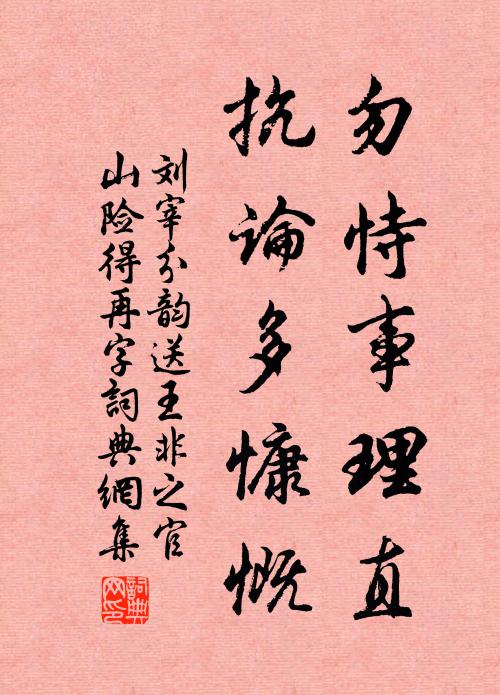 勿恃事理直
抗论多慷慨
刘宰分韵送王非之官
山险得再字词典網集
詞典网印